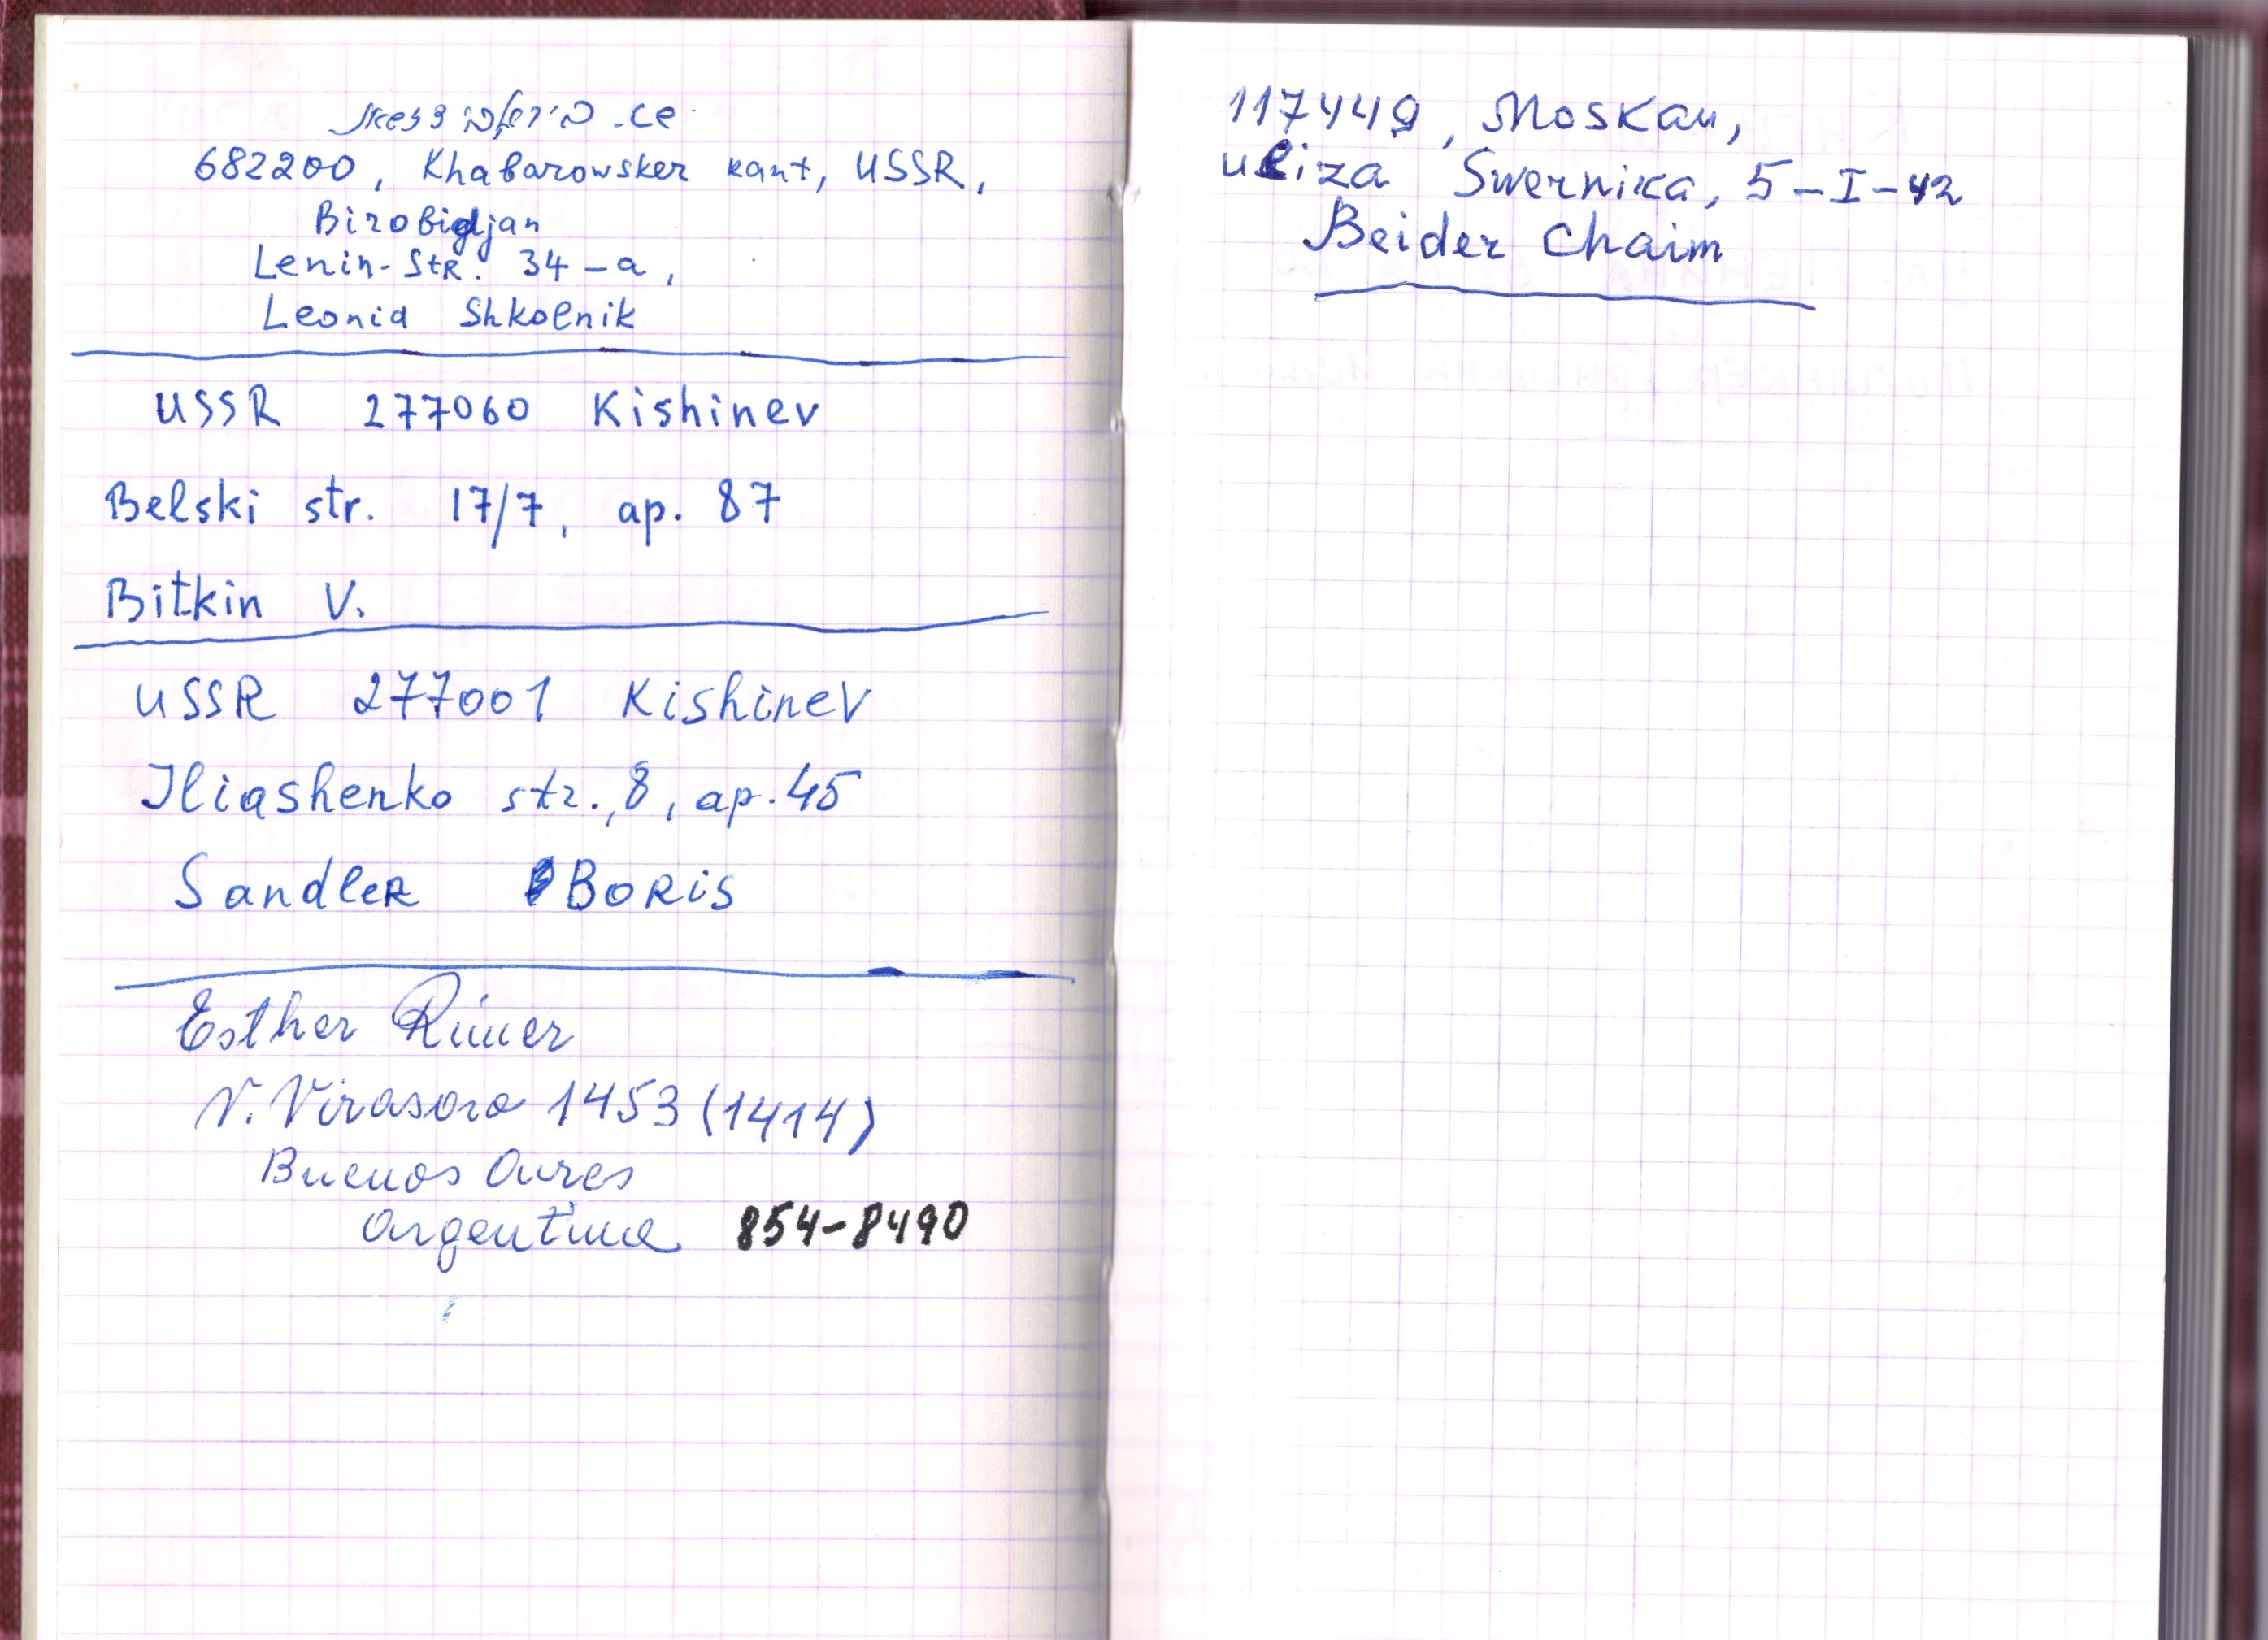 682200, Khabarowsker kant, USSR,
Birobidjan
Lenin-Str. 34-a,
Leonid Shkolnik
USSR 277060 Kishinev
Belski str. 17/7, ap. 87
Bitkin V.
USSR 277001 Kishinev
Iliashenko str., 8, ap. 45
Sandler Boris
Esther
V. Virasoro 1453 (1414)
Buenos Aires
Argentina 854-8490
117449, Moskau,
uliza Swernika, 5-I-42
Beider Chaim